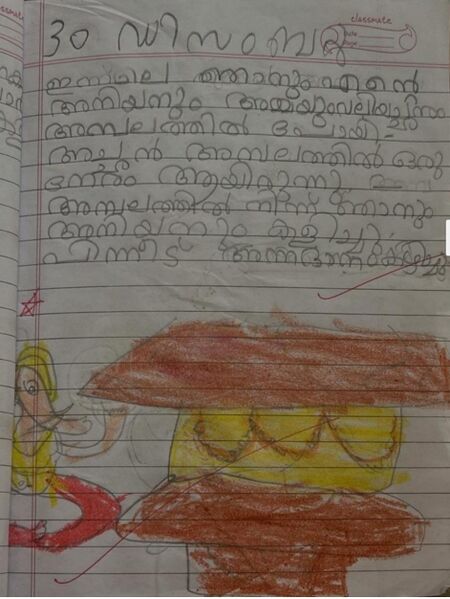 classmate
Date
Page
30 ഡിസംബർ
ഇന്നലെ ഞാനും എന്റെ
അനിയനും അമ്മയും വലിയച്ഛനും
അമ്പലത്തിൽ പോയി
അച്ഛൻ അമ്പലത്തിൽ ഒരു
ആയിരുന്നു
അമ്പലത്തിൽ നിന്ന് ഞാനും
അനിയനും കളിച്ചു
പിന്നീട് അന്നദാനം കഴിച്ചു